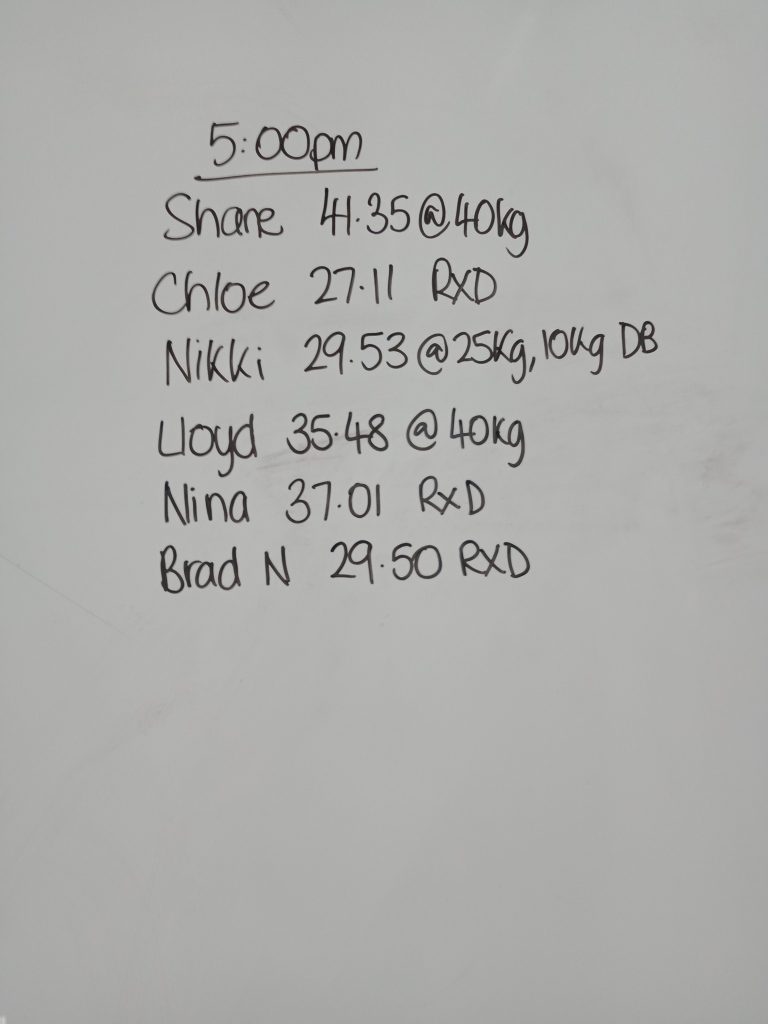 5:00pm
Shane 41.35 @ 40kg
Chloe 27.11 RXD
Nikki 29.53 @ 25kg, 10kg DB
Lloyd 35.48 @ 40kg
Nina 37.01 RXD
Brad N 29.50 RXD